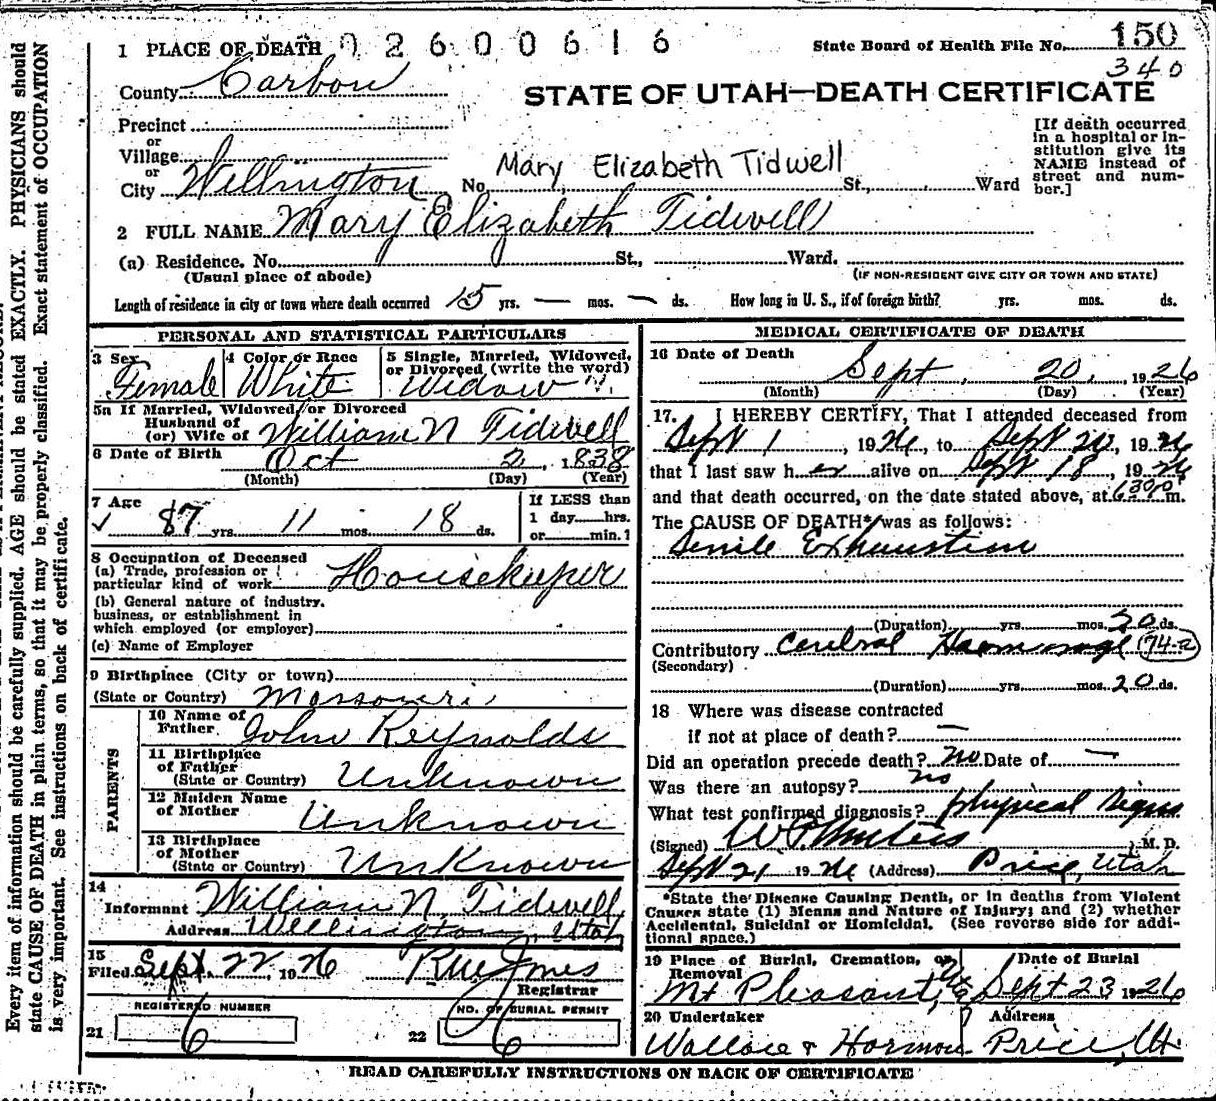 1 PLACE OF DEATH 02600616
State Board of Health File No. 150
340
County Carbon
STATE OF UTAH—DEATH CERTIFICATE
Precinct
or
Village
or
City Wellington No. Mary Elizabeth Tidwell St., Ward
[If death occurred in a hospital or institution give its NAME instead of street and number.]
2 FULL NAME Mary Elizabeth Tidwell
(a) Residence. No. St., Ward.
(Usual place of abode) (IF NON-RESIDENT GIVE CITY OR TOWN AND STATE)
Length of residence in city or town where death occurred 15 yrs. — mos. — ds. How long in U. S., if of foreign birth? yrs. mos. ds.
PERSONAL AND STATISTICAL PARTICULARS
3 Sex Female
4 Color or Race White
5 Single, Married, Widowed, or Divorced (write the word) Widow
5a If Married, Widowed, or Divorced
Husband of
(or) Wife of William N Tidwell
6 Date of Birth Oct 2, 1838
(Month) (Day) (Year)
7 Age
87 yrs. 11 mos. 18 ds.
If LESS than
1 day hrs.
or min.?
8 Occupation of Deceased
(a) Trade, profession or
particular kind of work Housekeeper
(b) General nature of industry.
business, or establishment in
which employed (or employer)
(c) Name of Employer
9 Birthplace (City or town)
(State or Country) Missouri
PARENTS
10 Name of
Father John Reynolds
11 Birthplace
of Father
(State or Country) Unknown
12 Maiden Name
of Mother Unknown
13 Birthplace
of Mother
(State or Country) Unknown
14
Informant William N. Tidwell
Address Wellington, Utah
15
Filed Sept 22, 1926
Registrar
REGISTERED NUMBER
21 6
NO. OF BURIAL PERMIT
22 6
MEDICAL CERTIFICATE OF DEATH
16 Date of Death
Sept. 20, 1926
(Month) (Day) (Year)
17. I HEREBY CERTIFY, That I attended deceased from
Sept 1, 1926, to Sept 20, 1926
that I last saw her alive on Sept 18, 1926
and that death occurred, on the date stated above, at m.
The CAUSE OF DEATH* was as follows:
Senile Exhaustion
(Duration) yrs. mos. 20 ds.
Contributory Cerebral Haemorrage 74-a
(Secondary)
(Duration) yrs. mos. 20 ds.
18 Where was disease contracted
if not at place of death? —
Did an operation precede death? No Date of —
Was there an autopsy? no
What test confirmed diagnosis? Physical Signs
(Signed) M. D.
Sept 21 1926 (Address) Price, Utah
*State the Disease Causing Death, or in deaths from Violent
Causes state (1) Means and Nature of Injury; and (2) whether
Accidental, Suicidal or Homicidal. (See reverse side for addi-
tional space.)
19 Place of Burial, Cremation, or
Removal
Mt Pleasant,
Date of Burial
Sept 23 1926
20 Undertaker
Wallace & Harmon
Address
Price, Ut.
READ CAREFULLY INSTRUCTIONS ON BACK OF CERTIFICATE
Every item of information should be carefully supplied. AGE should be stated EXACTLY. PHYSICIANS should
state CAUSE OF DEATH in plain terms, so that it may be properly classified. Exact statement of OCCUPATION
is very important. See instructions on back of certificate.